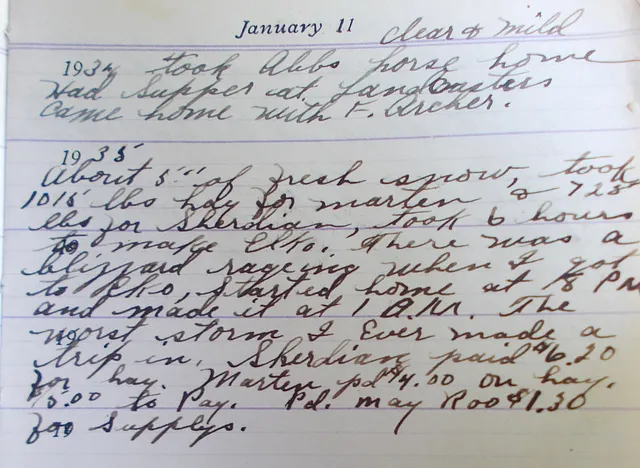 January 11 clear & mild
1934 took Abbs horse home
Had Supper at Landcasters
Came home with F. Archer.
1935
About 5" of fresh snow, took
1015 lbs hay for marten & 725
lbs for Sherdian, took 6 hours
to make Elko. There was a
blizzard rageing when I got
to Elko, started home at 8 PM
and made it at 1 A.M. The
worst storm I Ever made a
trip in. Sherdian paid $6.20
for hay. Marten pd $4.00 on hay.
5.00 to Pay. Pd. may Roo $1.30
for Supplys.